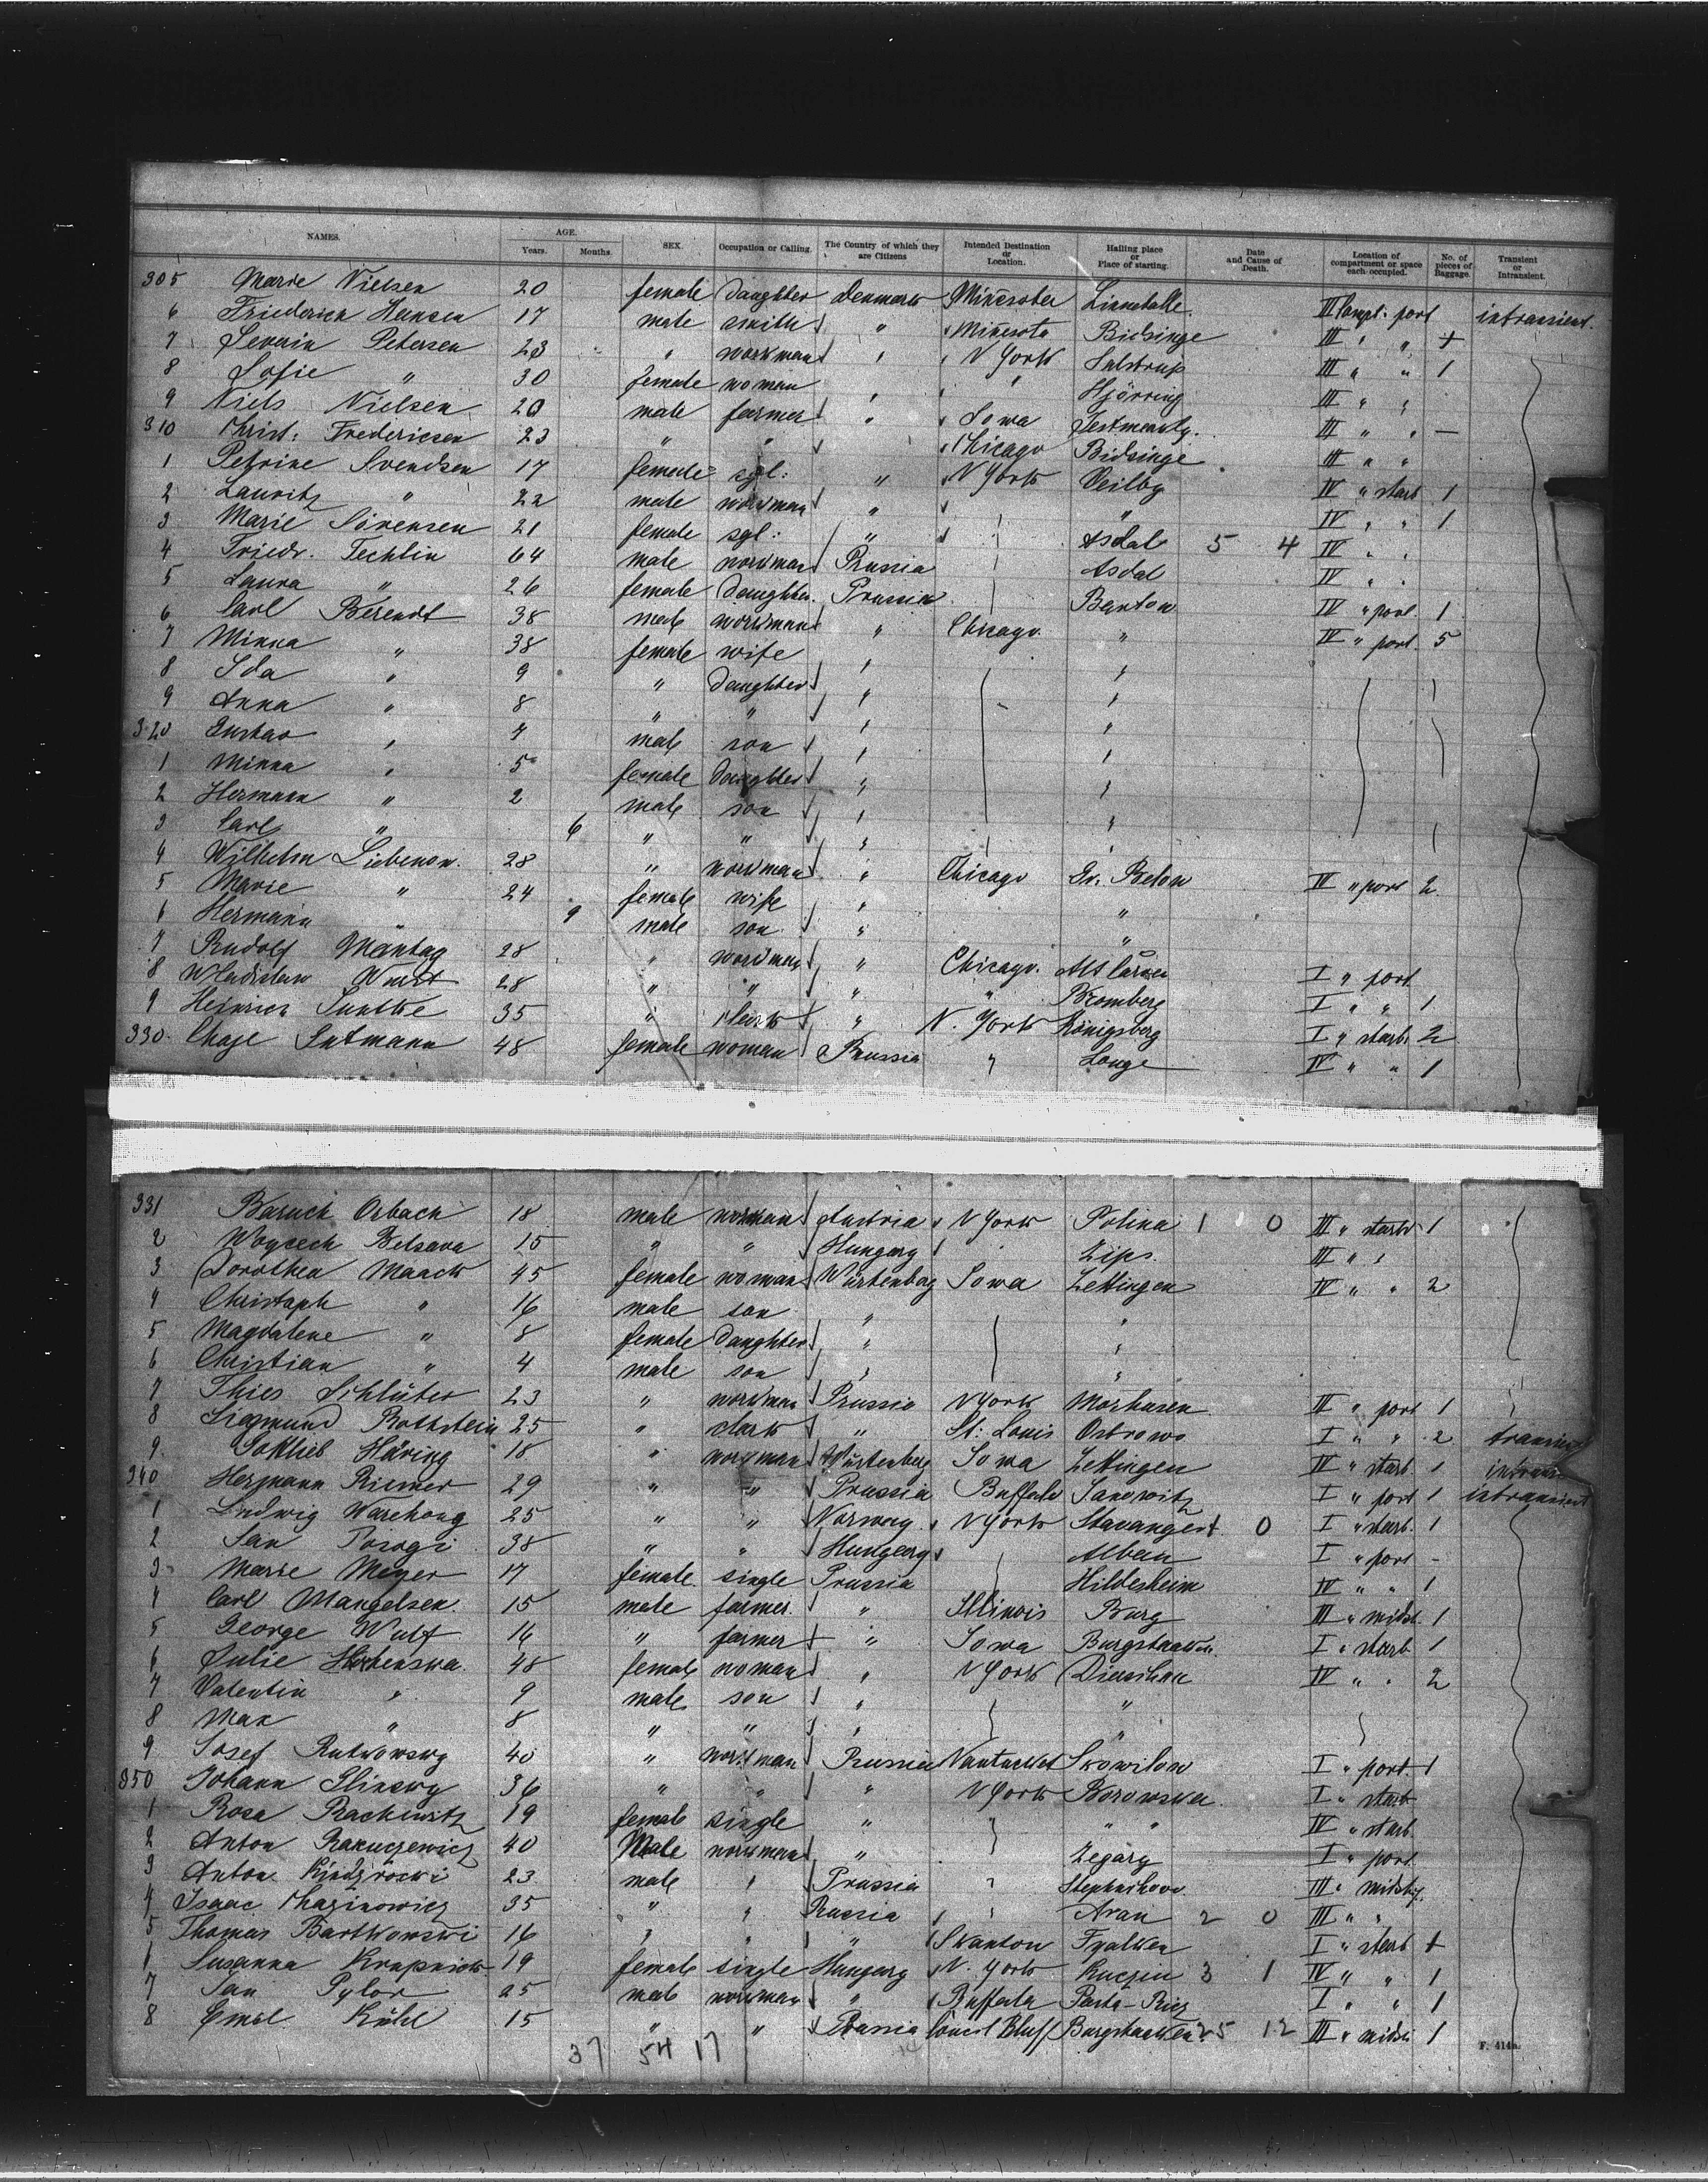 NAMES. AGE. Years. Months. SEX. Occupation or Calling. The Country of which they are Citizens Intended Destination or Location. Hailing place or Place of starting. Date and Cause of Death. Location of compartment or space each occupied. No. of pieces of Baggage. Transient or Intransient.
305 Marie Nielsen 20 female daughter Denmark Minesota Linnehalle III Compt: port intransient.
6 Friederich Hansen 17 male smith " Minesota Bidsinge III " "
7 Severin Petersen 23 " workman " N York Sulstrup III " " 1
8 Sofie " 30 female woman " " Hjörring III " "
9 Niels Nielsen 20 male farmer " Iowa III " " —
310 Christ: Fredericsen 23 " " Chicago Bidsinge III " "
1 Petrine Svendsen 17 female sgl: " N York Veilby IV " starb 1
2 Lauritz " 22 male workman " " IV " " 1
3 Marie Sörensen 21 female sgl: " Asdal 5 4 IV " "
4 Friedr. Techlin 64 male workman Russia Asdal IV " "
5 Laura " 26 female daughter Prussia Banton IV " port 1
6 Carl Berendt 38 male workman " Chicago " IV " port. 5
7 Minna " 38 female wife " "
8 Ida " 9 " daughter " "
9 Anna " 8 " " " "
320 Gustav " 7 male son " "
1 Minna " 5 female daughter " "
2 Hermann " 2 male son " "
3 Carl " 6 " " " "
4 Wilhelm Liebenow. 28 " workman " Chicago Gr. Below IV " port 2
5 Marie " 24 female wife " "
6 Hermann " 9 male son " "
7 Rudolf Mantag 28 " workman " Chicago. Alt I " port
8 Wladislaw Wurst 28 " " " " Bromberg I " " 1
9 Heinrich 35 " clark " N. York Königsberg I " starb. 2
330. Chaje Sutmann 48 female woman Russia " Louge IV " " 1
331 Baruch Orbach 18 male workman Austria N York Polina 1 0 III " starb 1
2 Woycech Belsava 15 " " Hungary Zips. III " "
3 Dorothea Maack 45 female woman Würtenberg Iowa Zettingen IV " " 2
4 Christoph " 16 male son " "
5 Magdalene " 8 female daughter " "
6 Christian " 4 male son " "
7 Thies Schlüter 23 " workman Prussia N York Morhusen II " port 1
8 Siegmund Rothstein 25 " clark " St: Louis Ostrowo I " " 2 transient
9. Gottlieb Häring 18 " workman Würtenberg Iowa Zettingen IV " starb. 1
340 Hermann Riemer 29 " " Prussia Buffalo Janowitz I " port 1 intransient
1 Ludwig Warehoug 25 " " Norway. N York Stavanger 1 0 I " starb. 1
2 Jan 38 " " Hungary Alben I " port -
3 Marie Meyer 17 female. single Prussia Hildesheim IV " " 1
4 Carl Mangelsen. 15 male farmer. " Illinois Burg III " midsh. 1
5 George Wulf 16 " farmer " Iowa Burgstaaken I " starb 1
6 Julie 48 female woman " N York Dierschau IV " " 2
7 Valentin " 9 male son " "
8 Max " 8 " " " "
9 Josef Rutkowsky 40 " workman Russia Nantucket Skowilon I " port 1
350 Johann Slinsky 36 " " " N York Borowska I " starb
1 Rosa Rackiwitz 19 female single " " " IV " starb.
2 Anton Rakuczewicz 40 Male workman " Zegary I " port
3 Anton 23 male " Prussia " III " midship
4 Isaac Chazinowicz 35 " " Russia " Aran 2 0 III " "
5 Thomas Bartkowski 16 " " " Swanton Tyalken I " starb
6 Susanna Krapniok 19 female single Hungary N. York Kuczin 3 1 IV " " 1
7 Jan Pylor 25 male workman " Buffalo Pasta-Ricz I " " 1
8 Emil Kühl 15 " " Prussia Councel Bluff Burgstaaken 25 12 III " midsh 1
37 54 17
F. 414a.